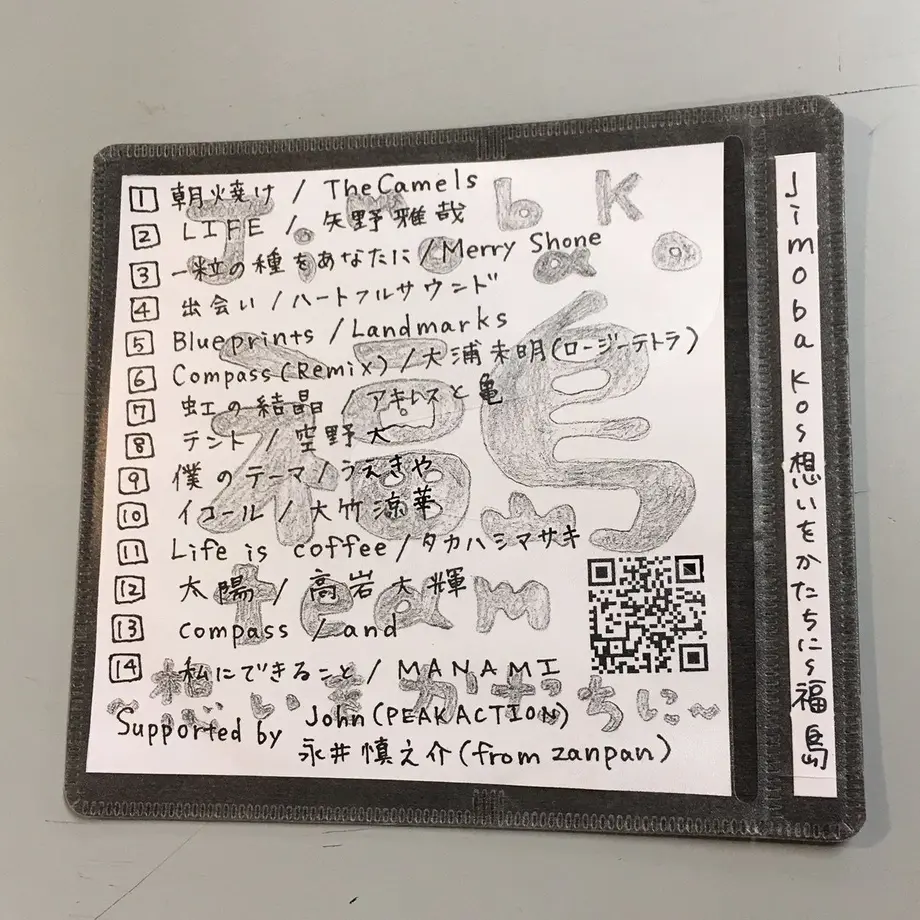 1 朝焼け / The Camels
2 LIFE / 矢野雅哉
3 一粒の種をあなたに / Merry Shone
4 出会い / ハートフルサウンド
5 Blueprints / Landmarks
6 Compass (Remix) / 大浦未明 (ロージーテトラ)
7 虹の結晶 / アキレスと亀
8 テント / 空野大
9 僕のテーマ / うえきや
10 イコール / 大竹涼華
11 Life is coffee / タカハシマサキ
12 太陽 / 高岩大輝
13 compass / and
14 私にできること / MANAMI
Supported by John (PEAK ACTION)
永井慎之介 (from zanpan)
J.m.b K
福島
team
~想いをかたちに~
Jimoba Kos想いをかたちにs福島